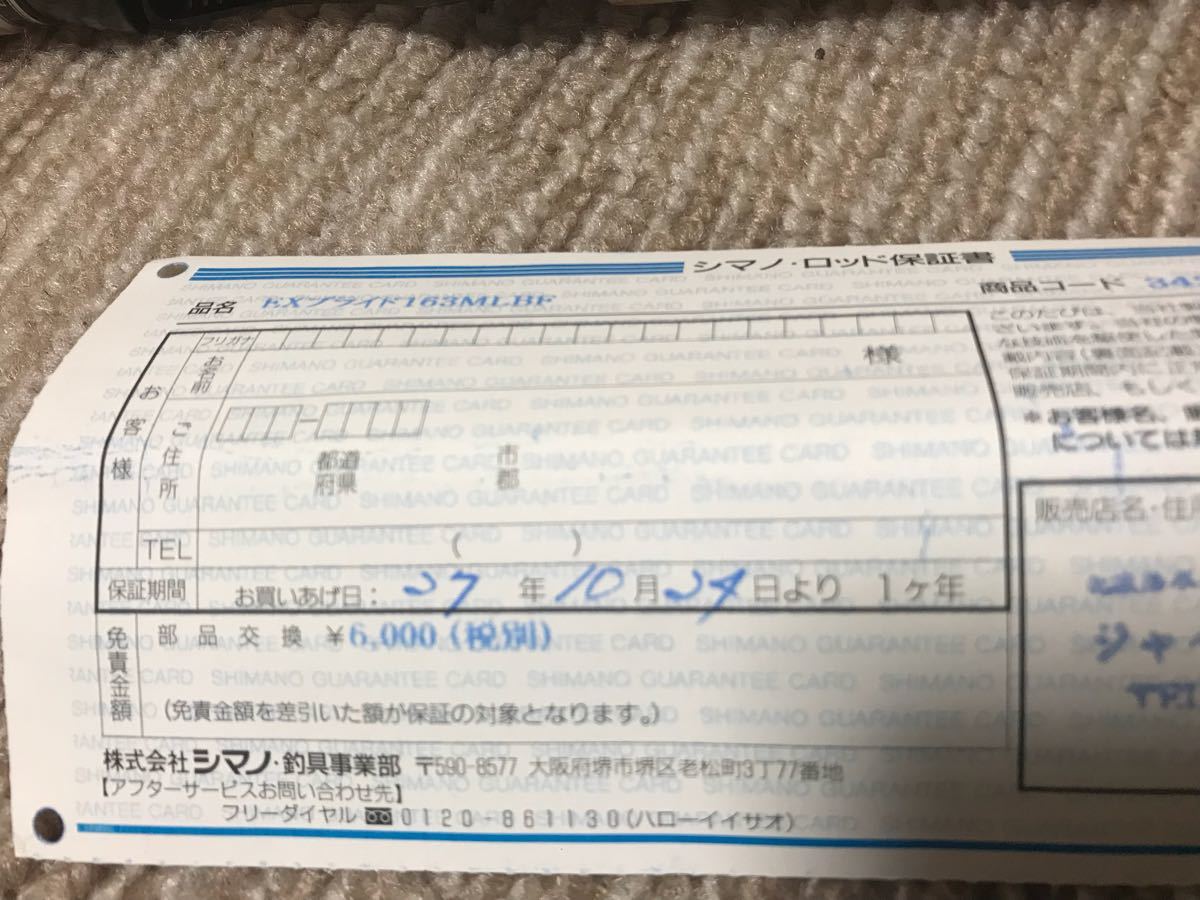 シマノ・ロッド保証書
品名 EXプライド163MLBF
商品コード 34
フリガナ
お名前 様
お客様
ご住所
都道府県 市郡
TEL ( )
保証期間 お買いあげ日: 27 年 10 月 24 日より 1ヶ年
免責金額
部品交換 ¥6,000(税別)
(免責金額を差引いた額が保証の対象となります。)
株式会社 シマノ・釣具事業部 〒590-8577 大阪府堺市堺区老松町3丁77番地
【アフターサービスお問い合わせ先】
フリーダイヤル 0120-861130(ハローイイサオ)
このたびは、
ざいます。当社の
な技術を駆使した
載内容(裏面記載
保証期間内に正
販売店、もしく
*お客様名、
については
販売店名・住
SHIMANO GUARANTEE CARD